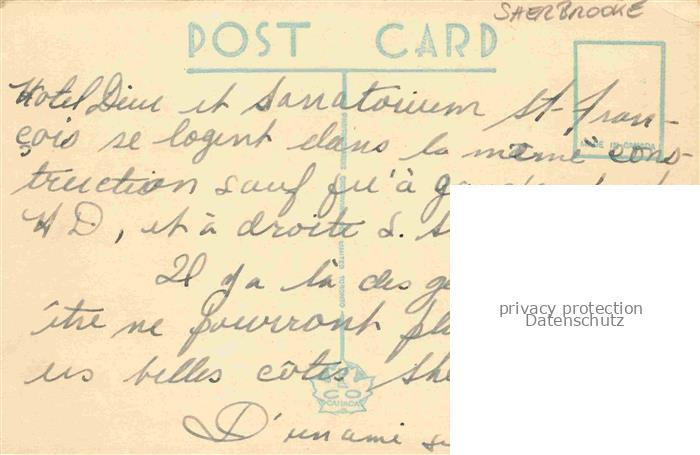 SHERBROOKE
POST CARD
MADE IN CANADA
Hotel Dieu et Sanatorium St-Fran-
çois se logent dans la même cons-
truction sauf qu'à
H D, et à droite S.
Il y a là des
être ne pourront
les belles côtes
CANADA
D'un ami
privacy protection
Datenschutz